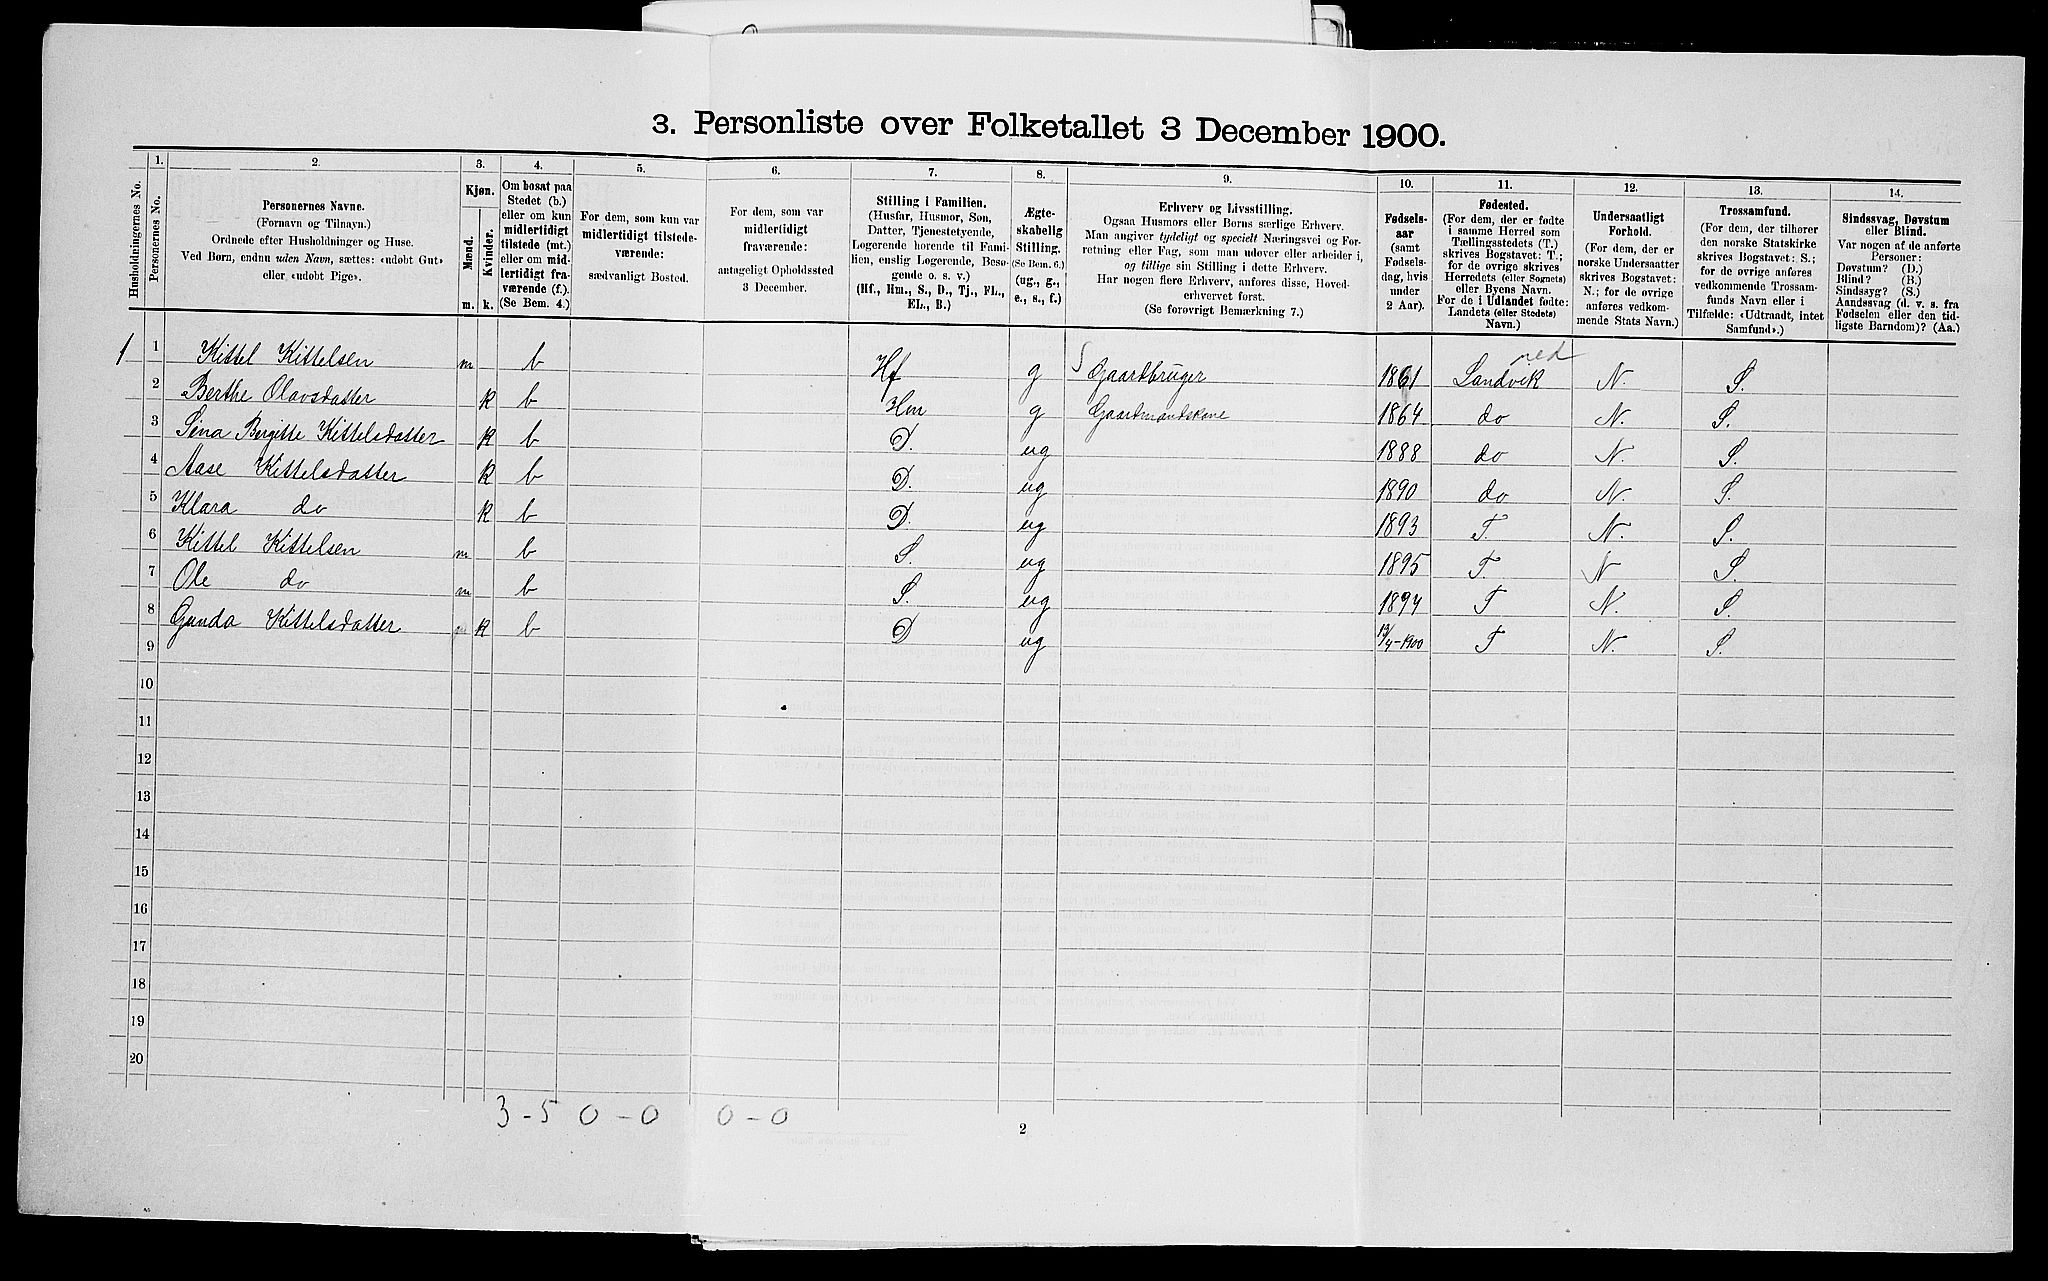 3. Personliste over Folketallet 3 December 1900.
Husholdningernes No.
1.
Personernes No.
2.
Personernes Navne.
(Fornavn og Tilnavn.)
Ordnede efter Husholdninger og Huse.
Ved Børn, endnu uden Navn, sættes: «udøbt Gut»
eller «udøbt Pige».
3.
Kjøn.
Mænd.
Kvinder.
m.
k.
4.
Om bosat paa
Stedet (b.)
eller om kun
midlertidigt
tilstede (mt.)
eller om mid-
lertidigt fra-
værende (f.).
(Se Bem. 4.)
5.
For dem, som kun var
midlertidigt tilstede-
værende:
sædvanligt Bosted.
6.
For dem, som var
midlertidigt
fraværende:
antageligt Opholdssted
3 December.
7.
Stilling i Familien.
(Husfar, Husmor, Søn,
Datter, Tjenestetyende,
Logerende hørende til Fami-
lien, enslig Logerende, Besø-
gende o. s. v.)
(Hf., Hm., S., D., Tj., FL.,
EL., B.)
8.
Ægte-
skabelig
Stilling.
(Se Bem. 6.)
(ug., g.,
e., s., f.)
9.
Erhverv og Livsstilling.
Ogsaa Husmors eller Børns særlige Erhverv.
Man angiver tydeligt og specielt Næringsvei og For-
retning eller Fag, som man udøver eller arbeider i,
og tillige sin Stilling i dette Erhverv.
Har nogen flere Erhverv, anføres disse, Hoved-
erhvervet først.
(Se forøvrigt Bemærkning 7.)
10.
Fødsels-
aar
(samt
Fødsels-
dag, hvis
under
2 Aar).
11.
Fødested.
(For dem, der er fødte
i samme Herred som
Tællingsstedets (T.)
skrives Bogstavet: T.;
for de øvrige skrives
Herredets (eller Sognets)
eller Byens Navn.
For de i Udlandet fødte:
Landets (eller Stedets)
Navn.)
12.
Undersaatligt
Forhold.
(For dem, der er
norske Undersaatter
skrives Bogstavet:
N.; for de øvrige
anføres vedkom-
mende Stats Navn.)
13.
Trossamfund.
(For dem, der tilhører
den norske Statskirke
skrives Bogstavet: S.;
for de øvrige anføres
vedkommende Trossam-
funds Navn eller i
Tilfælde: «Udtraadt, intet
Samfund».)
14.
Sindssvag, Døvstum
eller Blind.
Var nogen af de anførte
Personer:
Døvstum? (D.)
Blind? (B.)
Sindssyg? (S.)
Aandssvag (d. v. s. fra
Fødselen eller den tid-
ligste Barndom)? (Aa.)
1 1 Kittel Kittelsen m b Hf g Gaardbruger 1861 Landvik N. S.
2 Berthe Olavsdatter k b Hm g Gaardmandskone 1864 do N. S.
3 Sina Bergitte Kittelsdatter k b D. ug 1888 do N. S.
4 Aase Kittelsdatter k b D. ug 1890 do N. S.
5 Klara do k b D. ug 1893 T. N. S.
6 Kittel Kittelsen m b S. ug 1895 T. N S.
7 Ole do m b S. ug 1897 T N. S.
8 Gunda Kittelsdatter k b D ug 13/4-1900 T N. S.
9
10
11
12
13
14
15
16
17
18
19
20
3 - 5 0 - 0 0 - 0
2